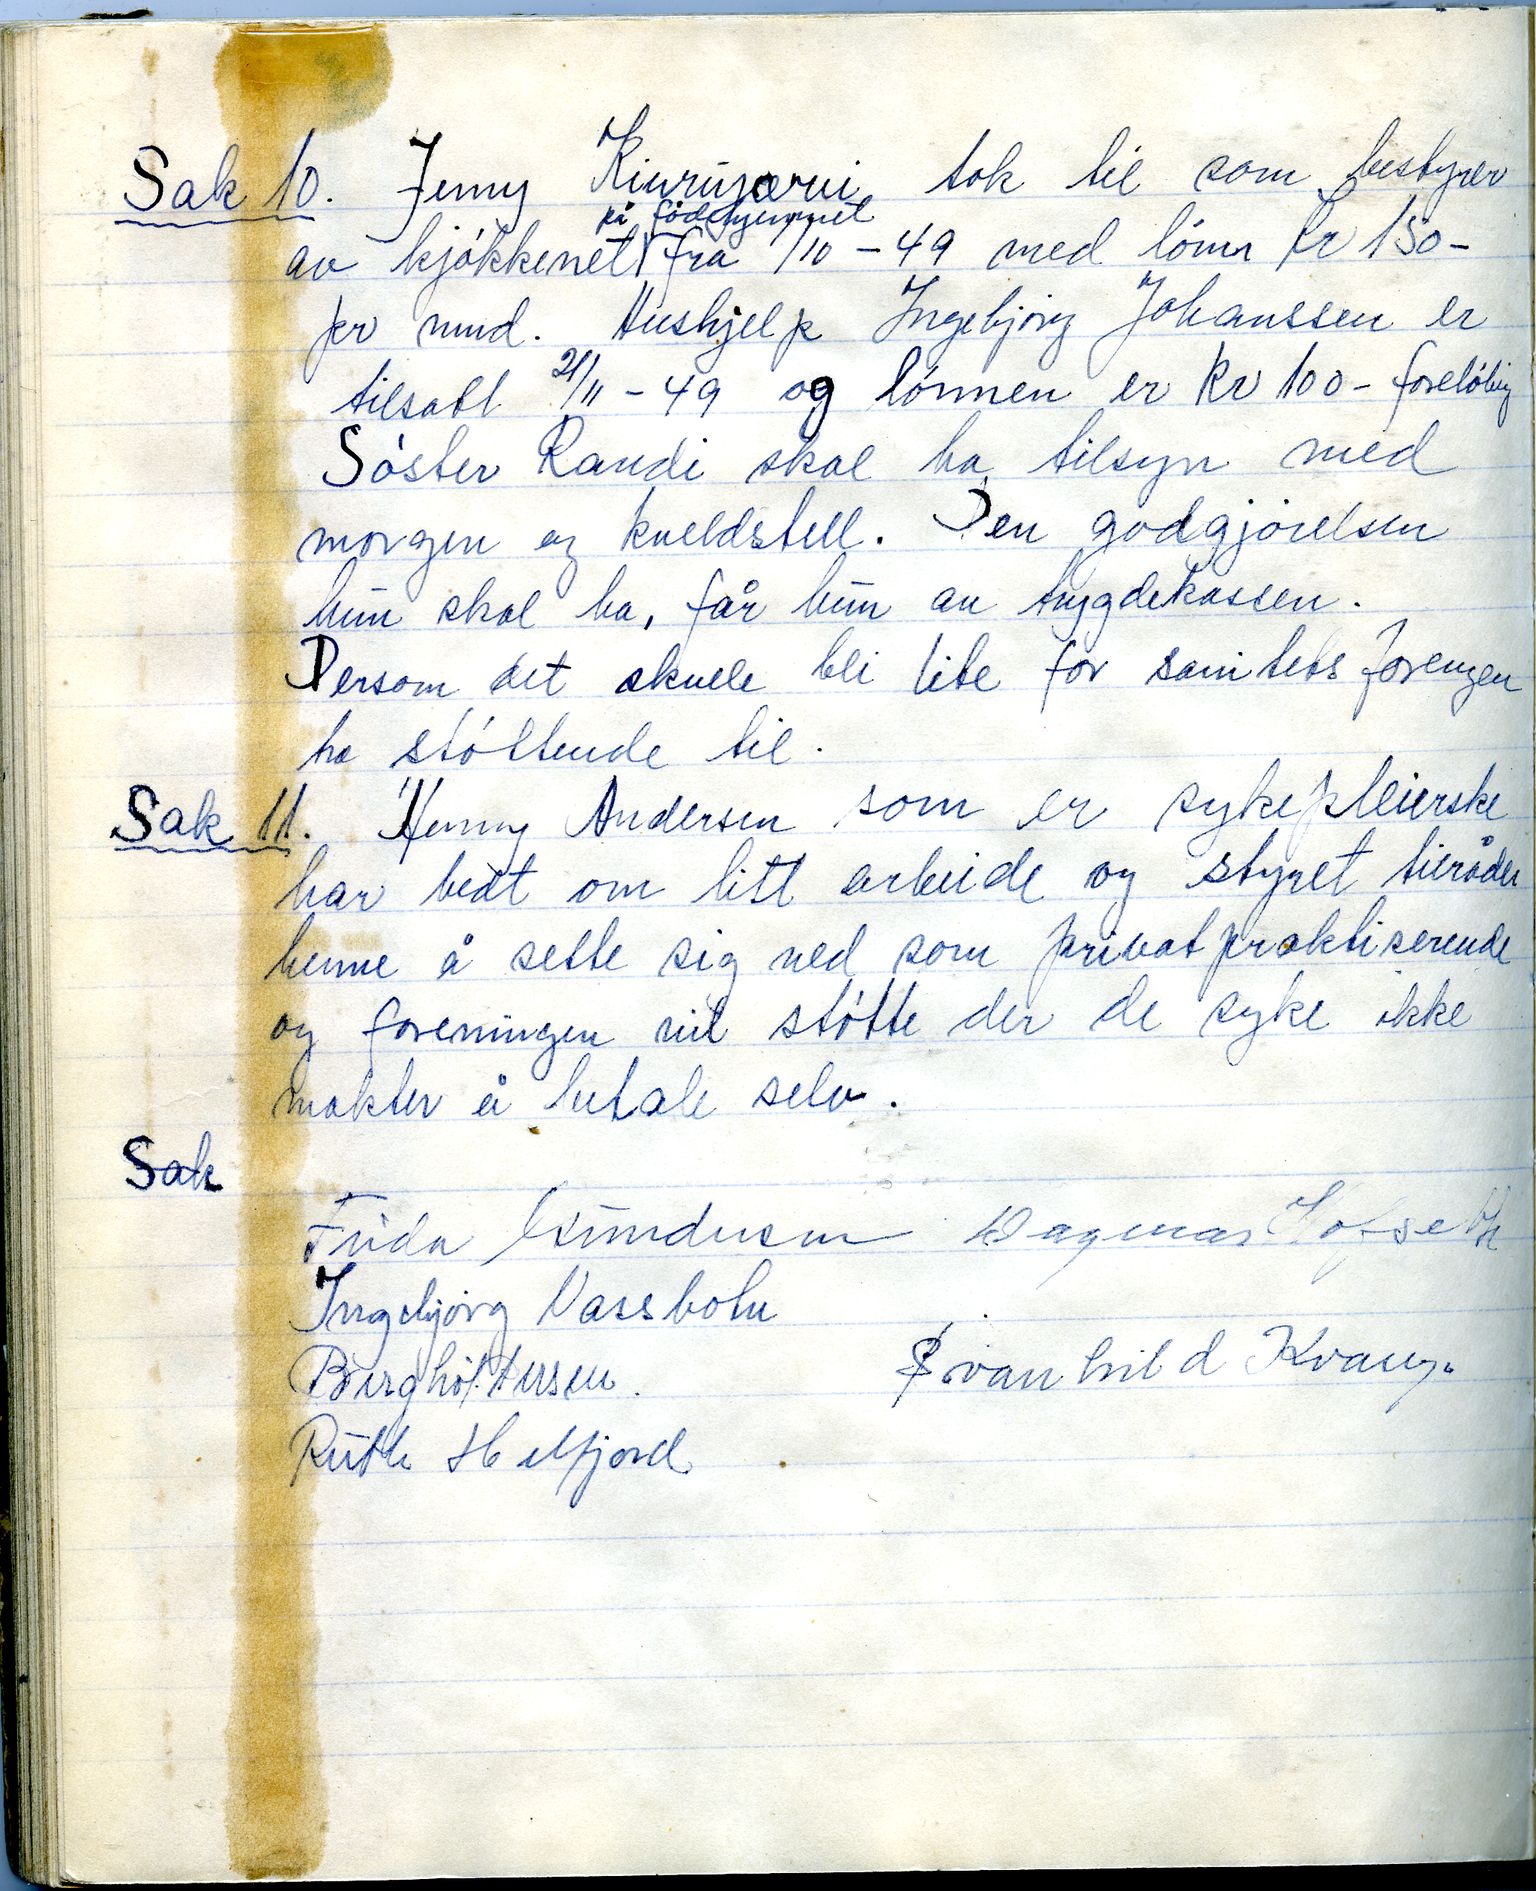 Sak 10. Jenny Kiurujærvi tok til som bestyrer
på fødehjemmet
av kjøkkenet fra 1/10 - 49 med lønn kr 150-
pr mnd. Hushjelp Ingebjørg Johanssen er
tilsatt 21/11 - 49 og lønnen er kr 100 - foreløbig
Søster Randi skal ha tilsyn med
morgen og kveldstell. Den godgjørelsen
hun skal ha, får hun av trygdekassen.
Dersom det skulle bli lite for sanitetsforengen
ha støttende til.
Sak 11. Henny Andersen som er sykepleierske
har bedt om litt arbeide og styret tilråder
henne å sette sig ned som privatpraktiserende
og foreningen vil støtte der de syke ikke
makter å betale selv.
Sak
Frida Gundersen Dagmar Hofseth
Ingebjørg Vassbotn
Svanhild Kvang.
Ruth Helfjord